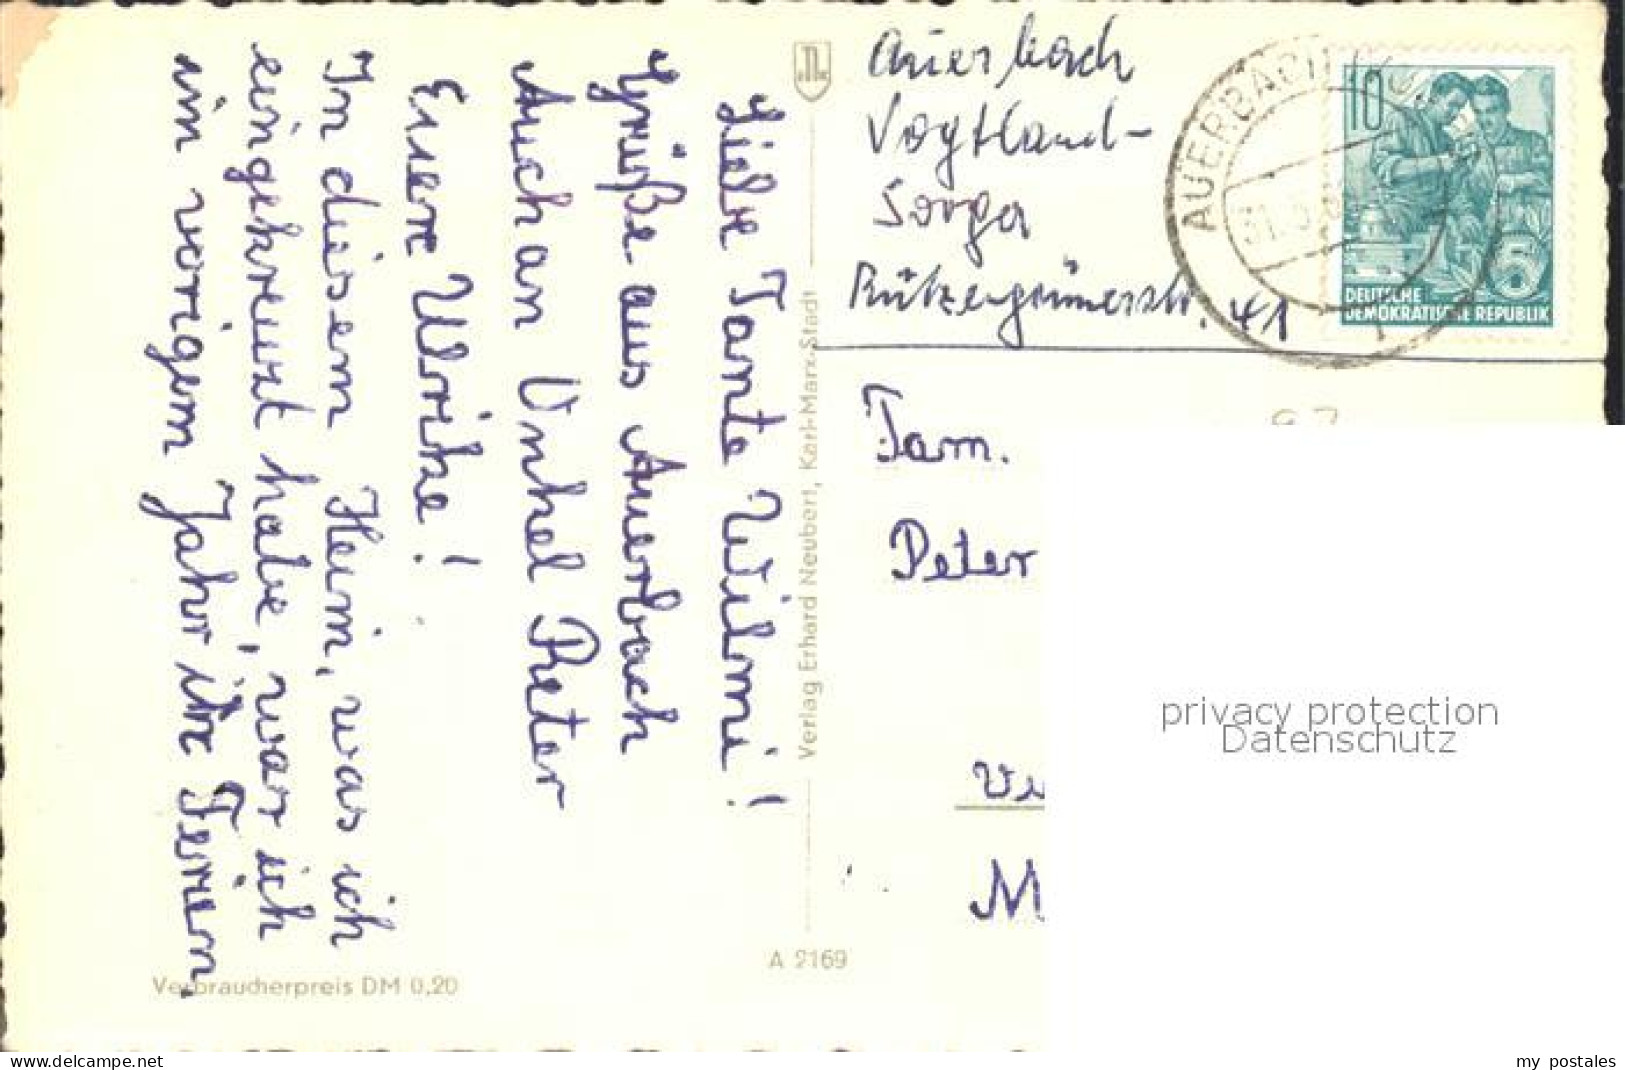 Liebe Tante Wilmi!
Grüße aus Auerbach
Auch an Onkel Peter
Eure Ulrike!
In diesem Heim, was ich
eingekreuzt habe, war ich
im vorigem Jahr ihn Ferien.
Verbraucherpreis DM 0,20
Verlag Erhard Neubert, Karl-Marx-Stadt
A 2169
Auerbach
Vogtland-
Sorga
Rützengrünerstr. 41
AUERBACH
10
5
DEUTSCHE
DEMOKRATISCHE REPUBLIK
Fam.
Peter
M
privacy protection
Datenschutz
delcampe.net
my_postales